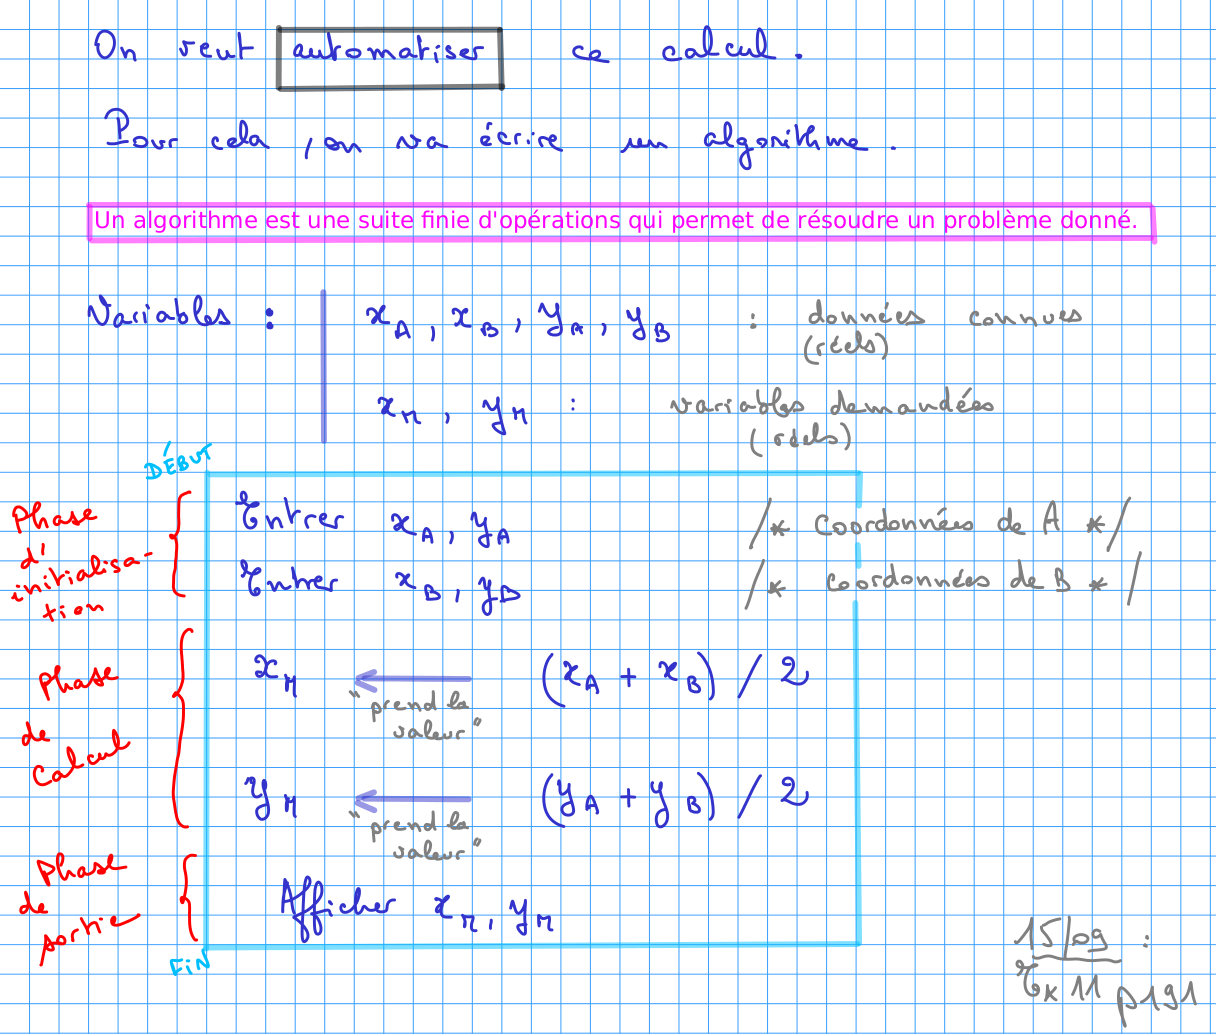 On veut automatiser ce calcul.
Pour cela, on va écrire un algorithme.
Un algorithme est une suite finie d'opérations qui permet de résoudre un problème donné.
Variables : x_A, x_B, y_A, y_B : données connues
(réels)
x_M, y_M : variables demandées
(réels)
DÉBUT
Phase d'initialisa-tion
Entrer x_A, y_A /* Coordonnées de A */
Entrer x_B, y_B /* coordonnées de B */
Phase de Calcul
x_M ← (x_A + x_B) / 2
"prend la
valeur"
y_M ← (y_A + y_B) / 2
"prend la
valeur"
Phase de sortie
Afficher x_M, y_M
FIN
15/09 :
Ex 11 p191